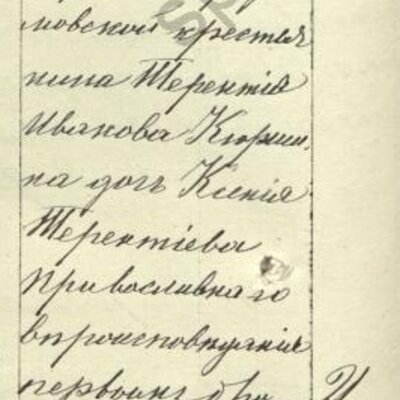 мовской крестья
нина Терентія
Иванова Кюрши
на дочь Ксенія
Терентіева
православнаго
вѣроисповѣданія
первымъ бра
И